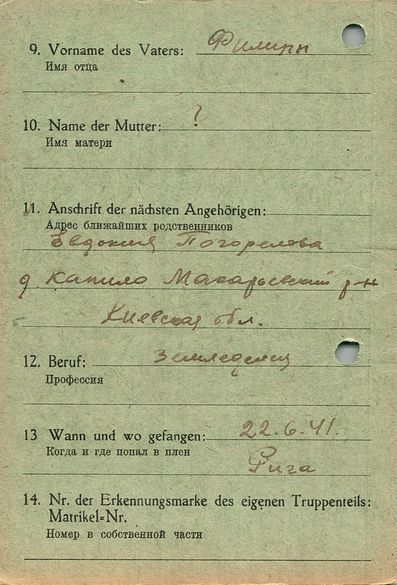 9. Vorname des Vaters: Филипп
Имя отца
10. Name der Mutter: ?
Имя матери
11. Anschrift der nächsten Angehörigen:
Адрес ближайших родственников
Евдокия Погорелова
д Капило Макарьевский р-н
Киевская обл.
12. Beruf: Земледелец
Профессия
13 Wann und wo gefangen: 22.6.41.
Когда и где попал в плен
Рига
14. Nr. der Erkennungsmarke des eigenen Truppenteils:
Matrikel=Nr.
Номер в собственной части